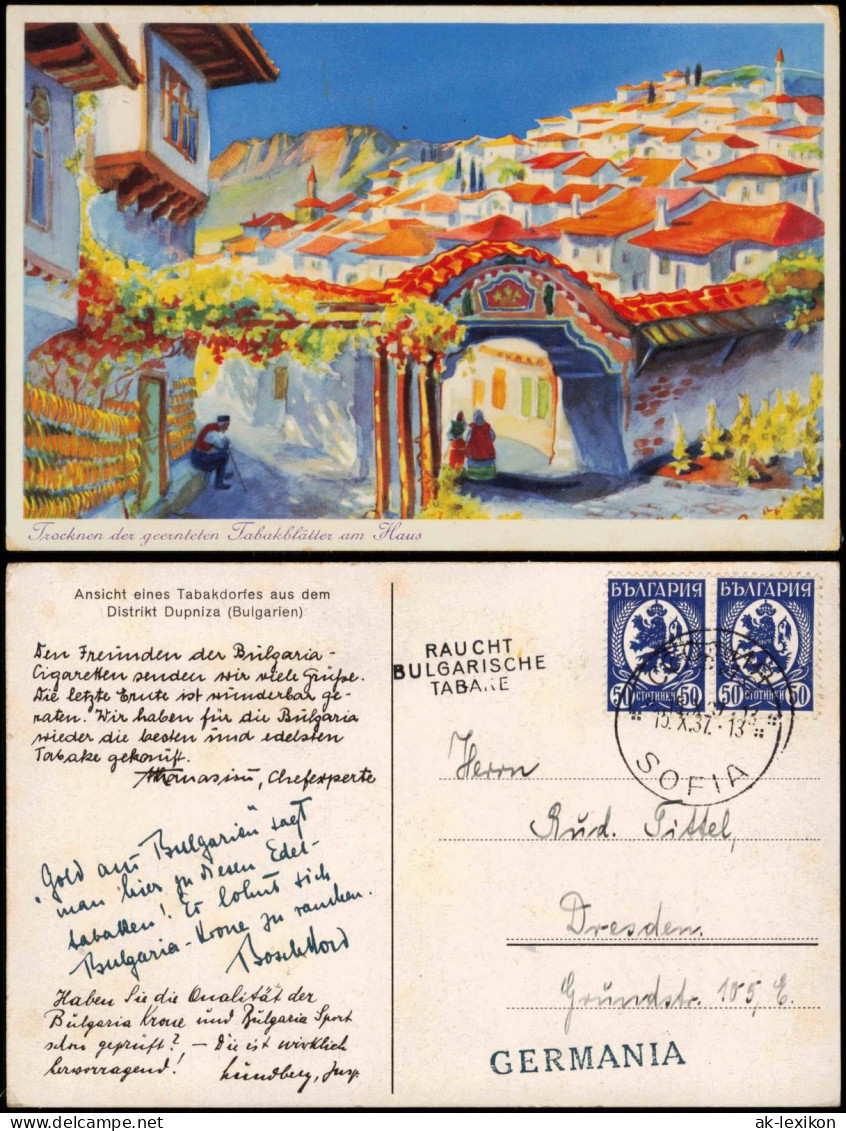 Trocknen der geernteten Tabakblätter am Haus
Ansicht eines Tabakdorfes aus dem
Distrikt Dupniza (Bulgarien)
Den Freunden der Bulgaria-
Cigaretten senden wir viele Grüße.
Die letzte Ernte ist wunderbar ge-
raten. Wir haben für die Bulgaria
wieder die besten und edelsten
Tabake gekauft.
Athanasiu, Chefexperte
"Gold aus Bulgarien" sagt
man hier zu diesen Edel-
tabaken! Es lohnt sich
Bulgaria-Krone zu rauchen.
Haben Sie die Qualität der
Bulgaria Krone und Bulgaria Sport
schon geprüft? – Die ist wirklich
hervorragend!
Lundberg, Insp.
RAUCHT
BULGARISCHE
TABAKE
БЪЛГАРИЯ БЪЛГАРИЯ
50 СТОТИНКИ 50 50 СТОТИНКИ 50
15.X.37.-13
SOFIA
Herrn
Rud. Tittel,
Dresden.
Grundstr. 105, E.
GERMANIA
www.ak-ansichtskarten.de
ak-lexikon